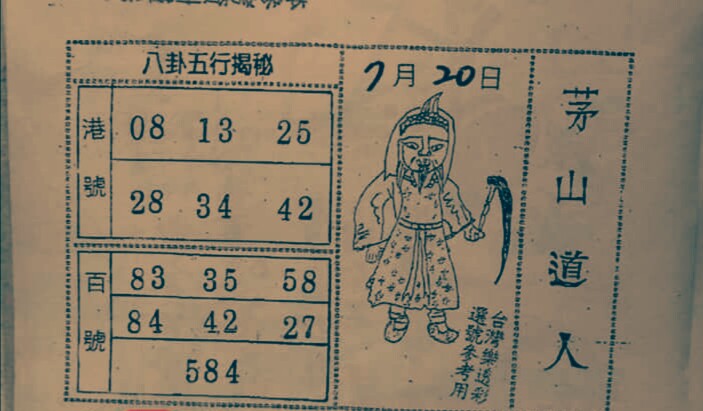 八卦五行揭秘
港號
08 13 25
28 34 42
百號
83 35 58
84 42 27
584
7月20日
台灣樂透彩
選號參考用
茅山道人